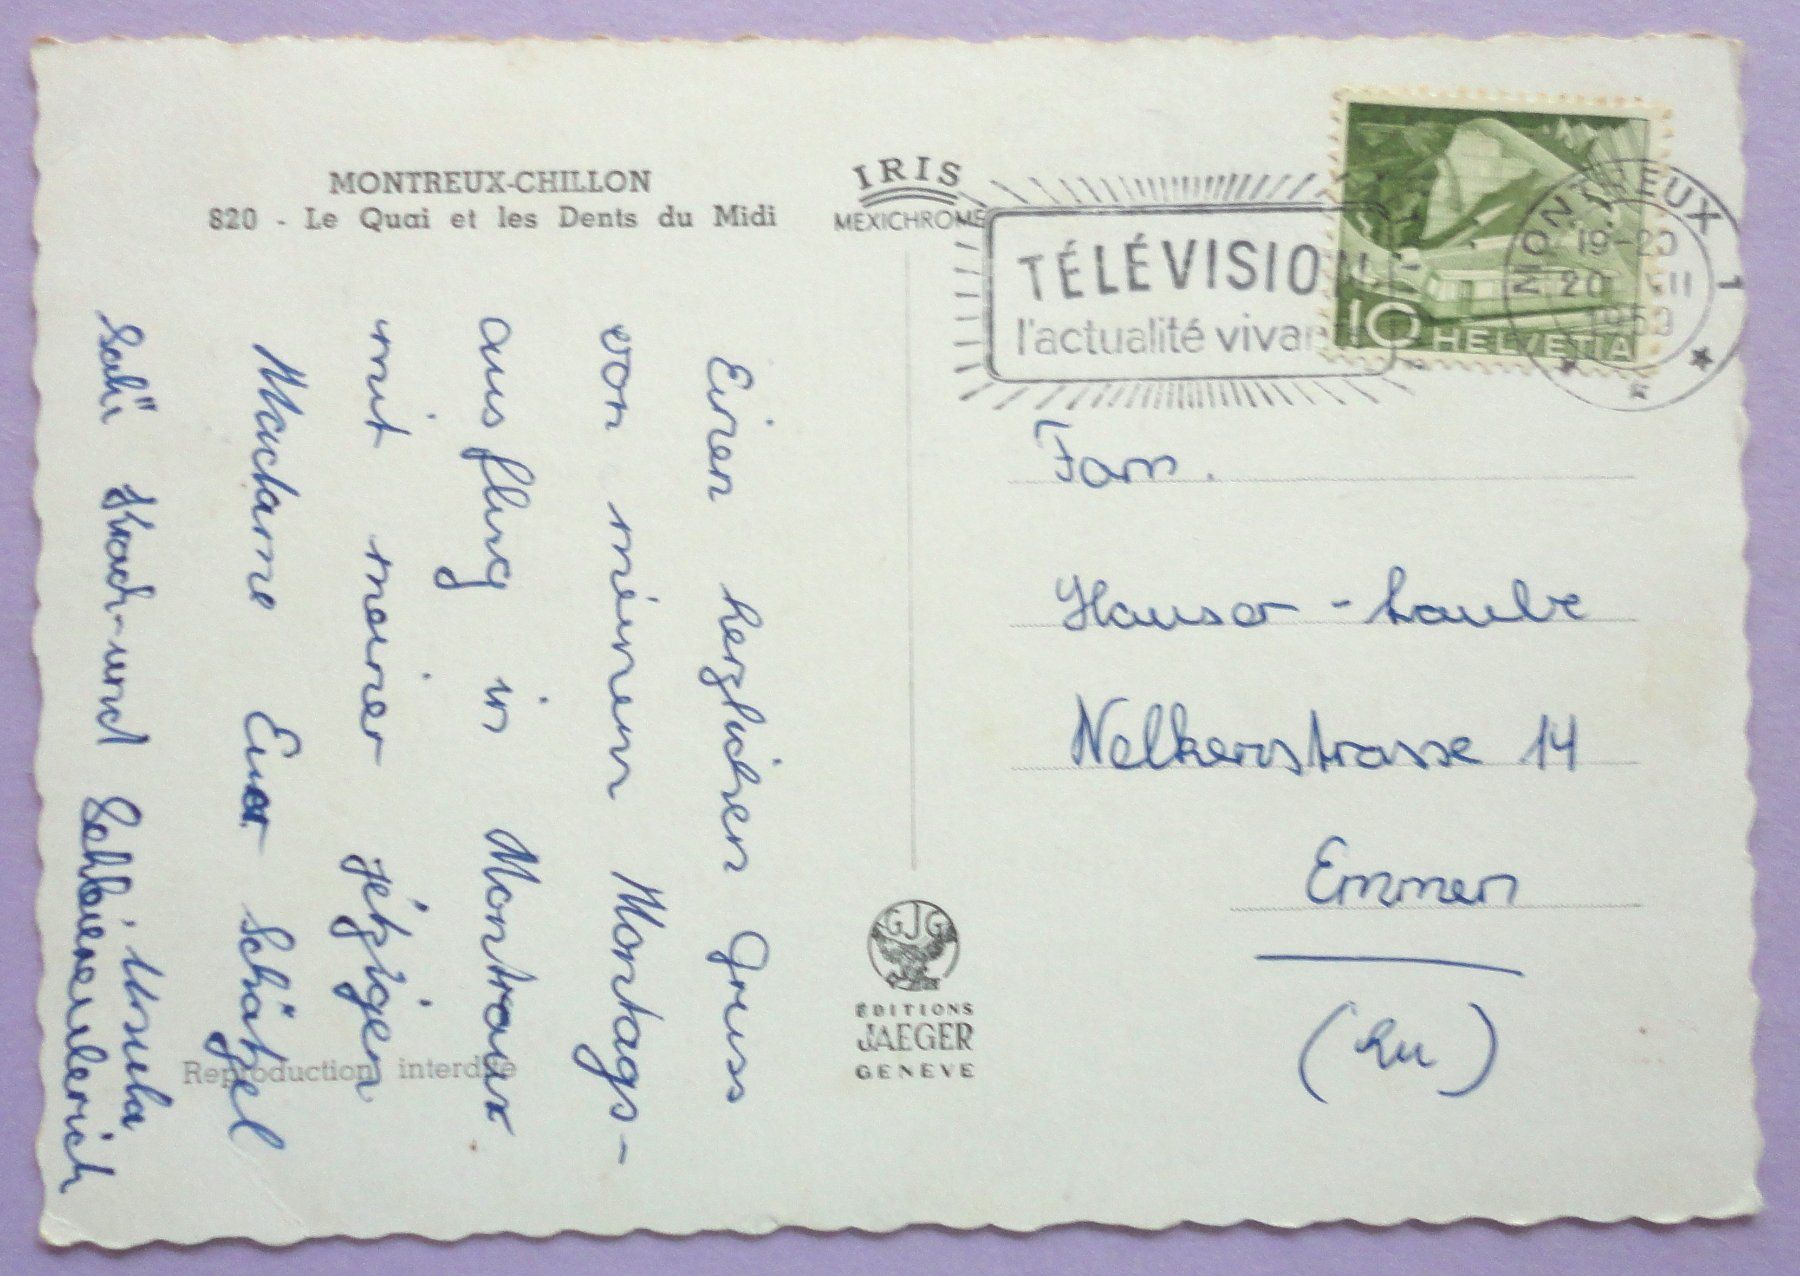 MONTREUX-CHILLON
820 - Le Quai et les Dents du Midi
IRIS
MEXICHROME
TÉLÉVISION
l'actualité vivan
MONTREUX 1
19-20
20 VII
1959
10 HELVETIA
Einen herzlichen Gruss
von meinem Montags-
ausflug in Montreux
mit meiner jetzigen
Madame Euer Schätzel
Ursula
Salü Koch- und
Fam.
Hauser - Laube
Nelkenstrasse 14
Emmen
(Lu)
GJG
ÉDITIONS
JAEGER
GENÈVE
Reproduction interdite